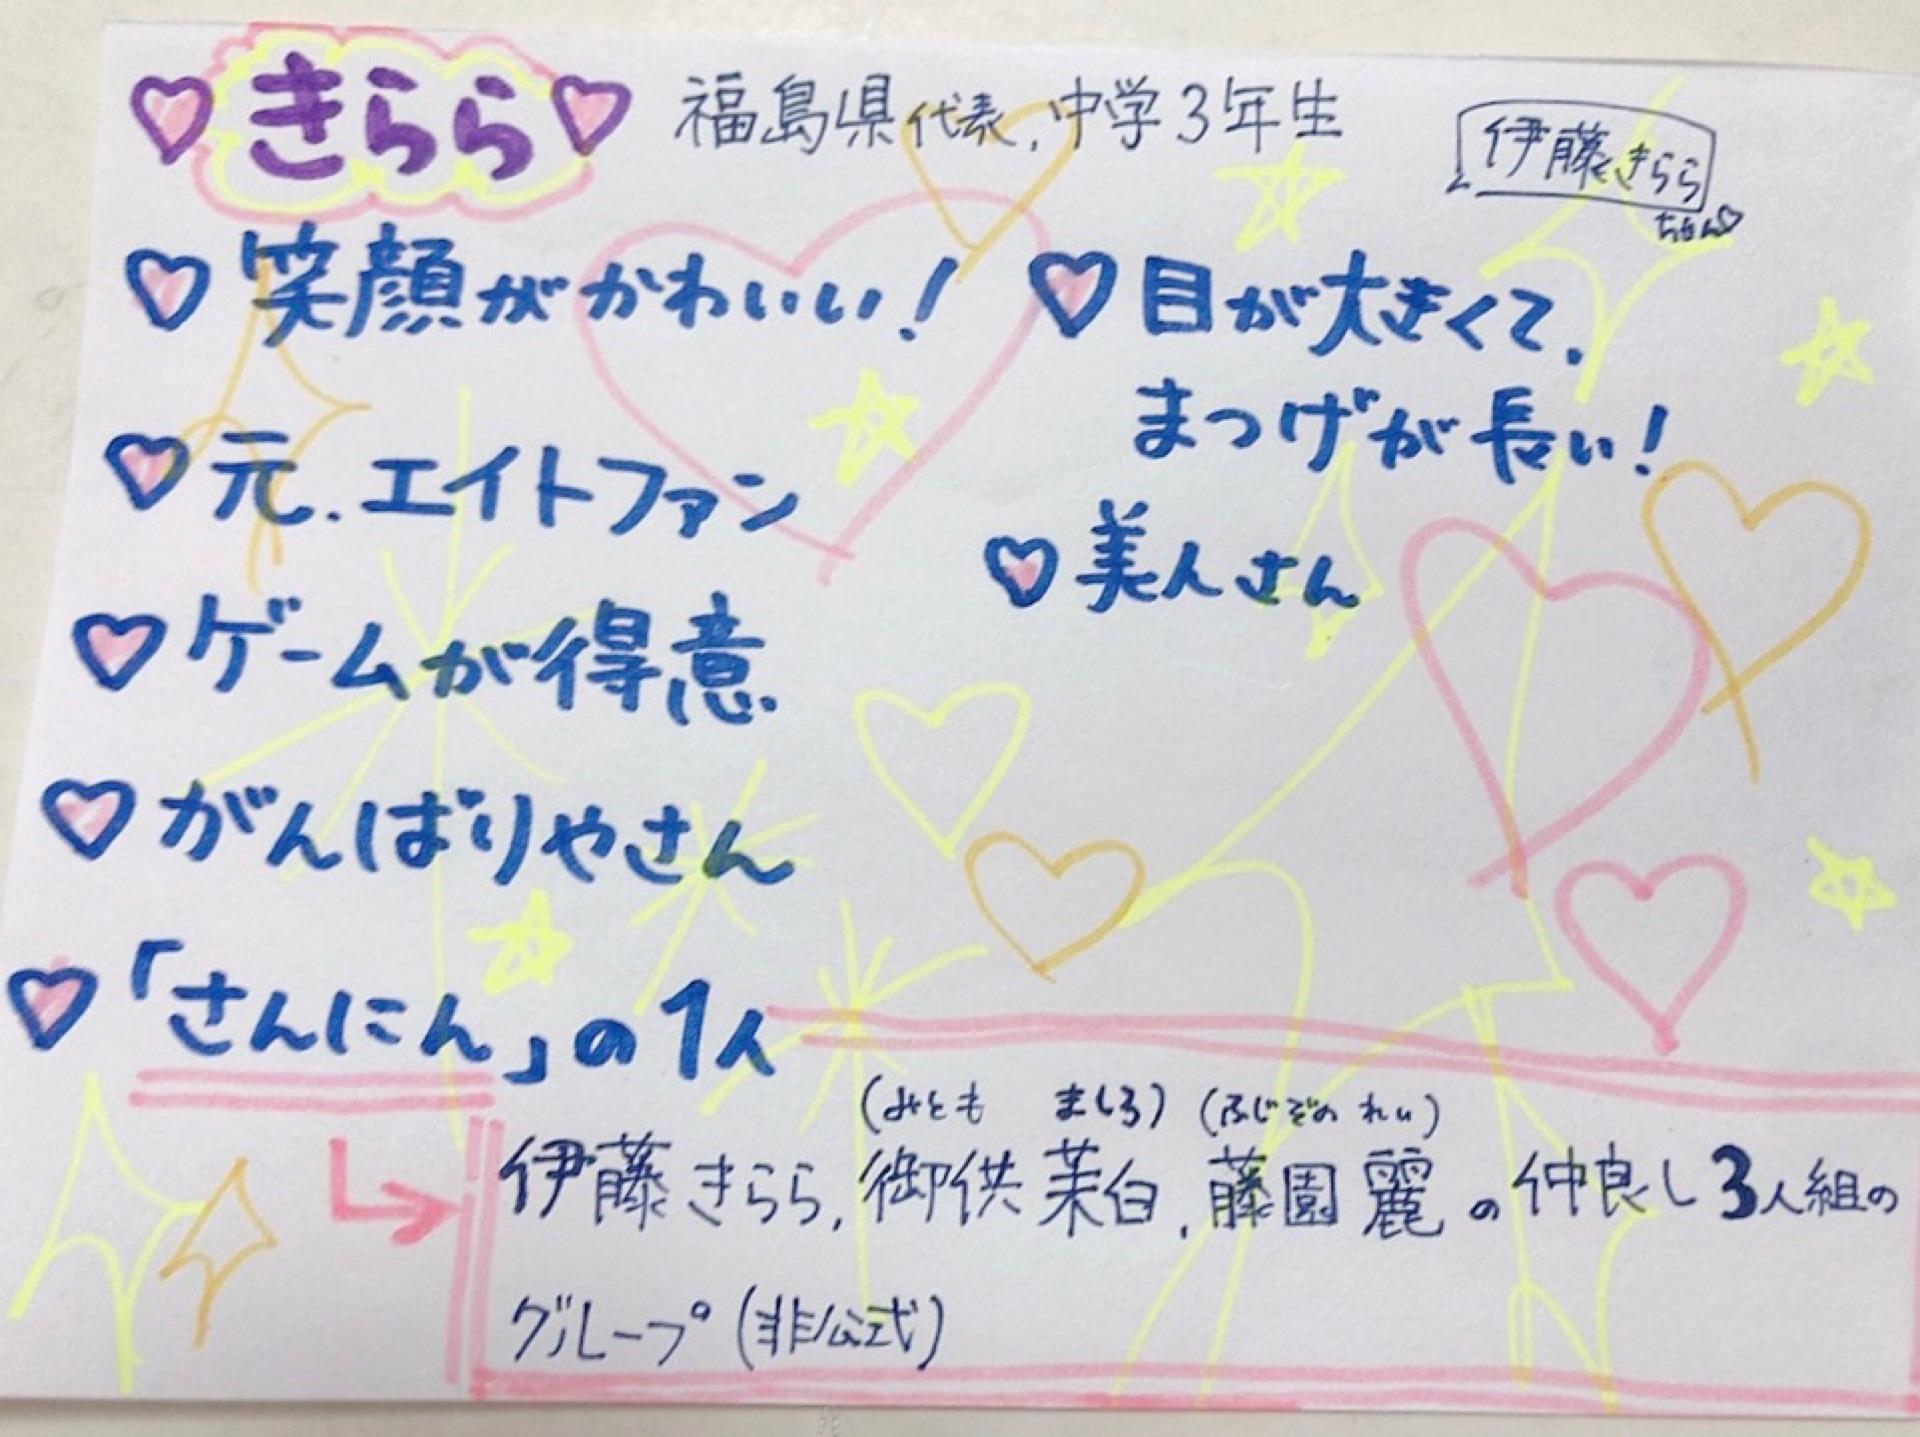 ♡きらら♡ 福島県代表.中学3年生
伊藤きらら
ちゃん♡
♡笑顔がかわいい!
♡元.エイトファン
♡ゲームが得意.
♡がんばりやさん
♡「さんにん」の1人
♡目が大きくて.
まつげが長い!
♡美人さん
(みとも ましろ)(ふじぞの れい)
伊藤きらら.御供茉白.藤園麗の仲良し3人組の
グループ(非公式)